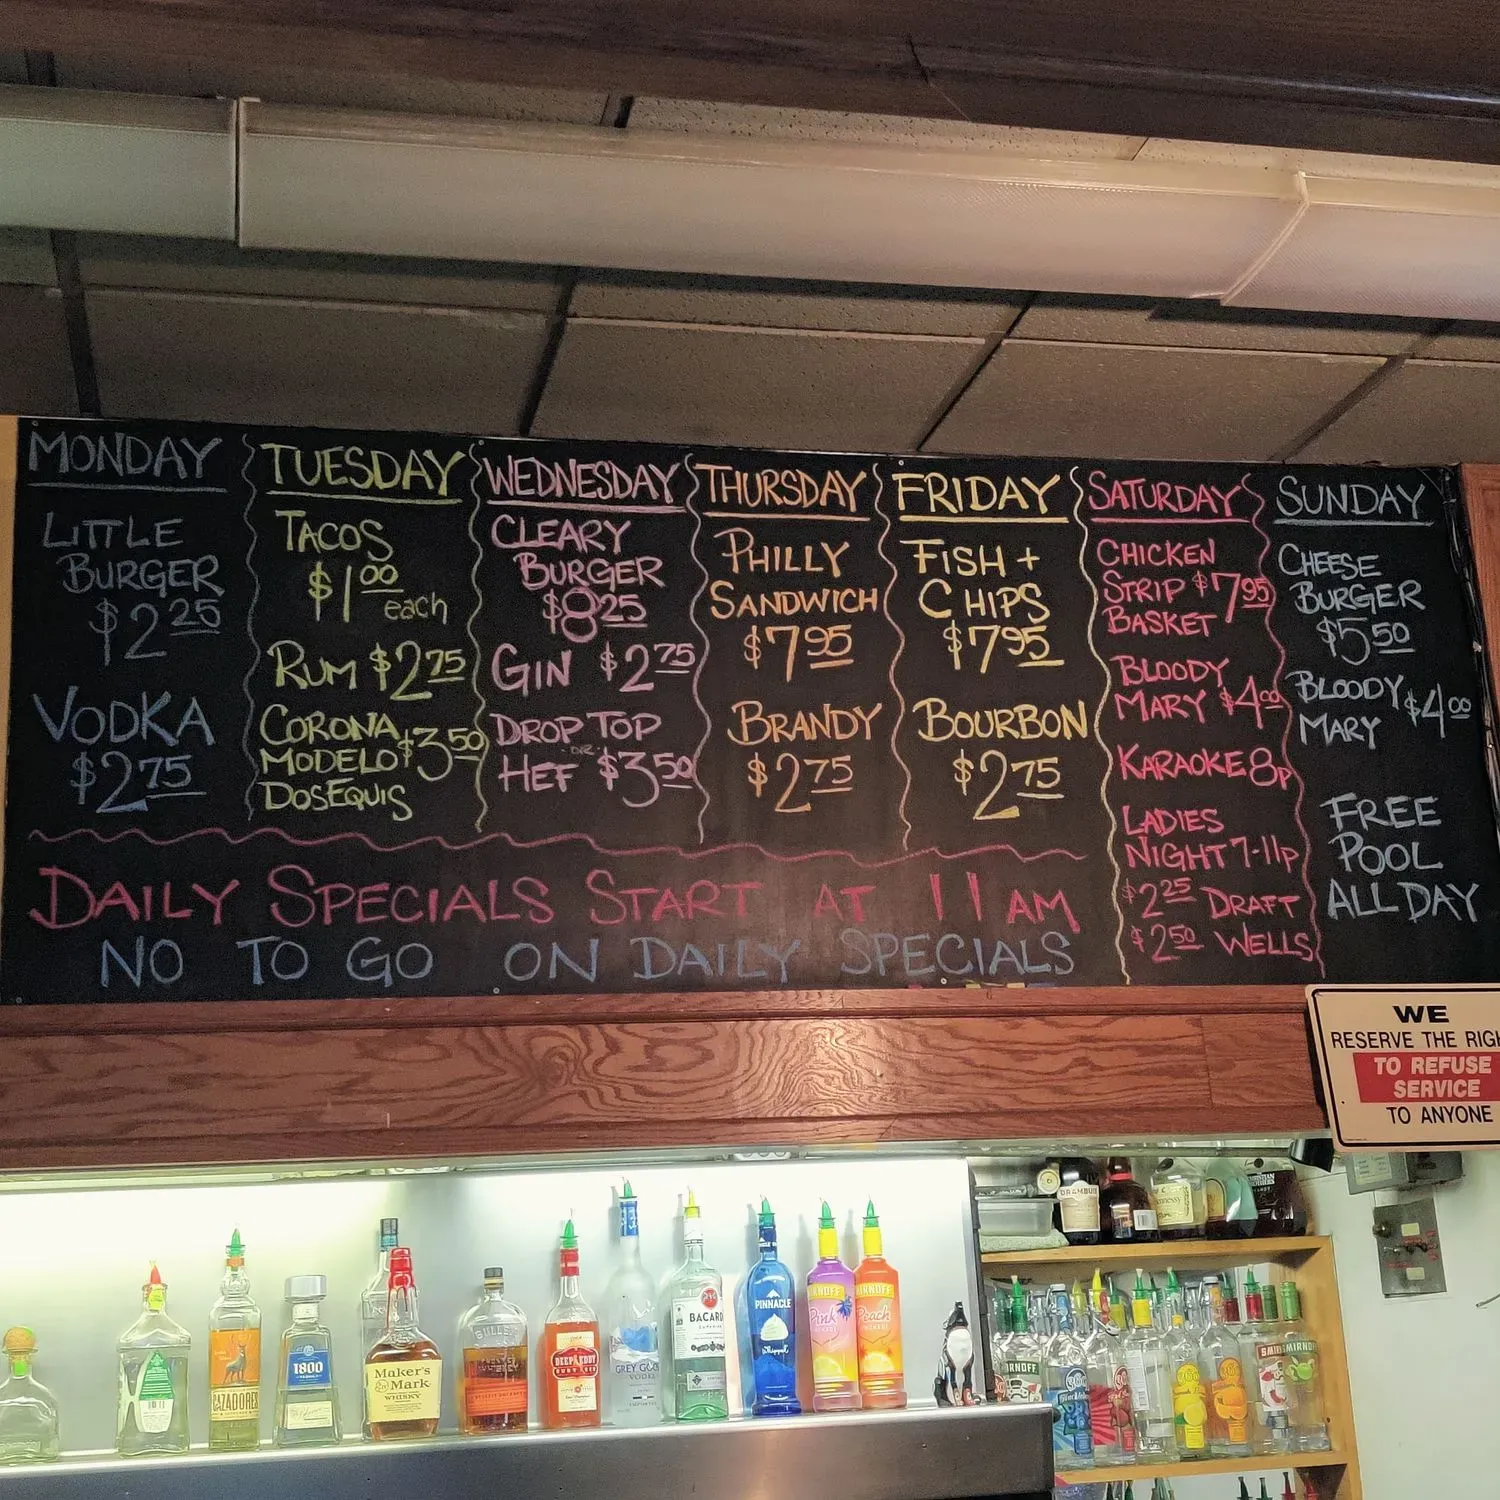 MONDAY
LITTLE
BURGER
$2 25
VODKA
$2 75
TUESDAY
TACOS
$1 00
each
RUM $2 75
CORONA
MODELO $3 50
DOSEQUIS
WEDNESDAY
CLEARY
BURGER
$8 25
GIN $2 75
DROP TOP
OR
HEF $3 50
THURSDAY
PHILLY
SANDWICH
$7 95
BRANDY
$2 75
FRIDAY
FISH +
CHIPS
$7 95
BOURBON
$2 75
SATURDAY
CHICKEN
STRIP $7 95
BASKET
BLOODY
MARY $4 00
KARAOKE 8P
LADIES
NIGHT 7-11P
$2 25 DRAFT
$2 50 WELLS
SUNDAY
CHEESE
BURGER
$5 50
BLOODY $4 00
MARY
FREE
POOL
ALL DAY
DAILY SPECIALS START AT 11 AM
NO TO GO ON DAILY SPECIALS
WE
RESERVE THE RIGH
TO REFUSE
SERVICE
TO ANYONE
CAZADORES
1800
Maker's
Mark
WHISKY
BULLEIT
DEEP EDDY
RUBY RED
GREY GOOSE
VODKA
BACARDI
PINNACLE
Whipped
SMIRNOFF
Pink
SMIRNOFF
Peach
DRAMBUIE
Hennessy
SMIRNOFF
SMIRNOFF